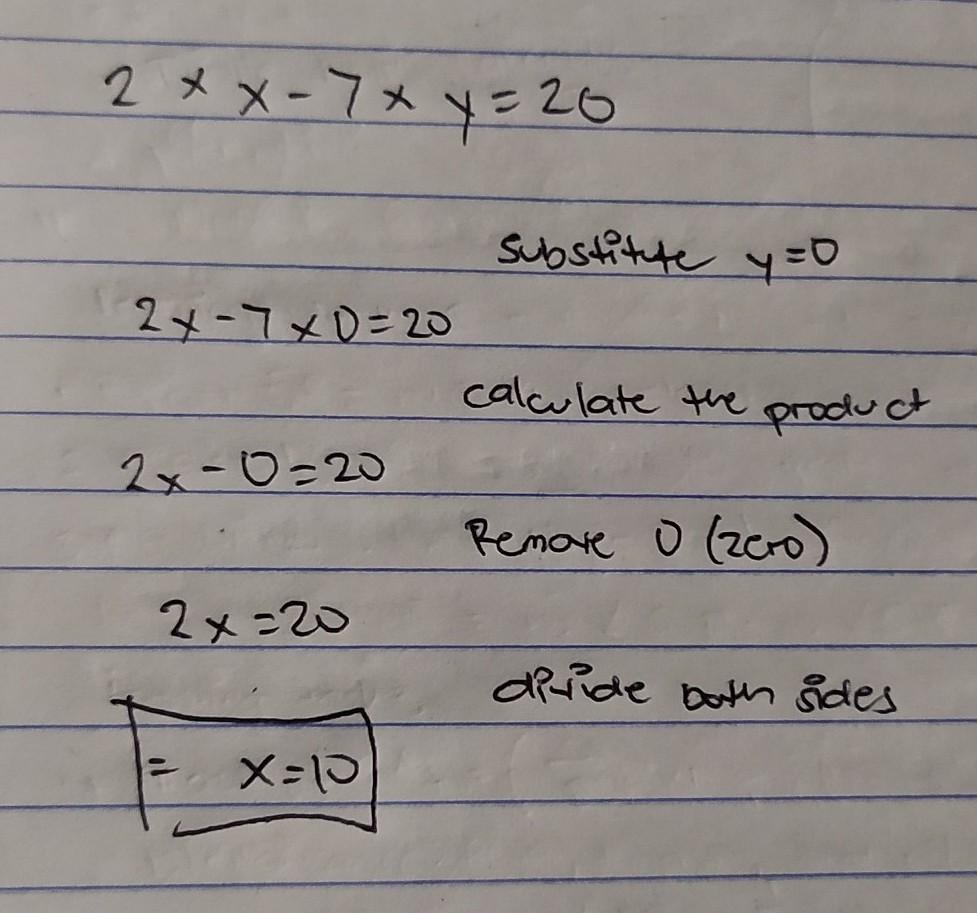 2 × x - 7 × y = 20
substitute y = 0
2x - 7 × 0 = 20
calculate the product
2x - 0 = 20
Remove 0 (zero)
2x = 20
divide both sides
= x = 10